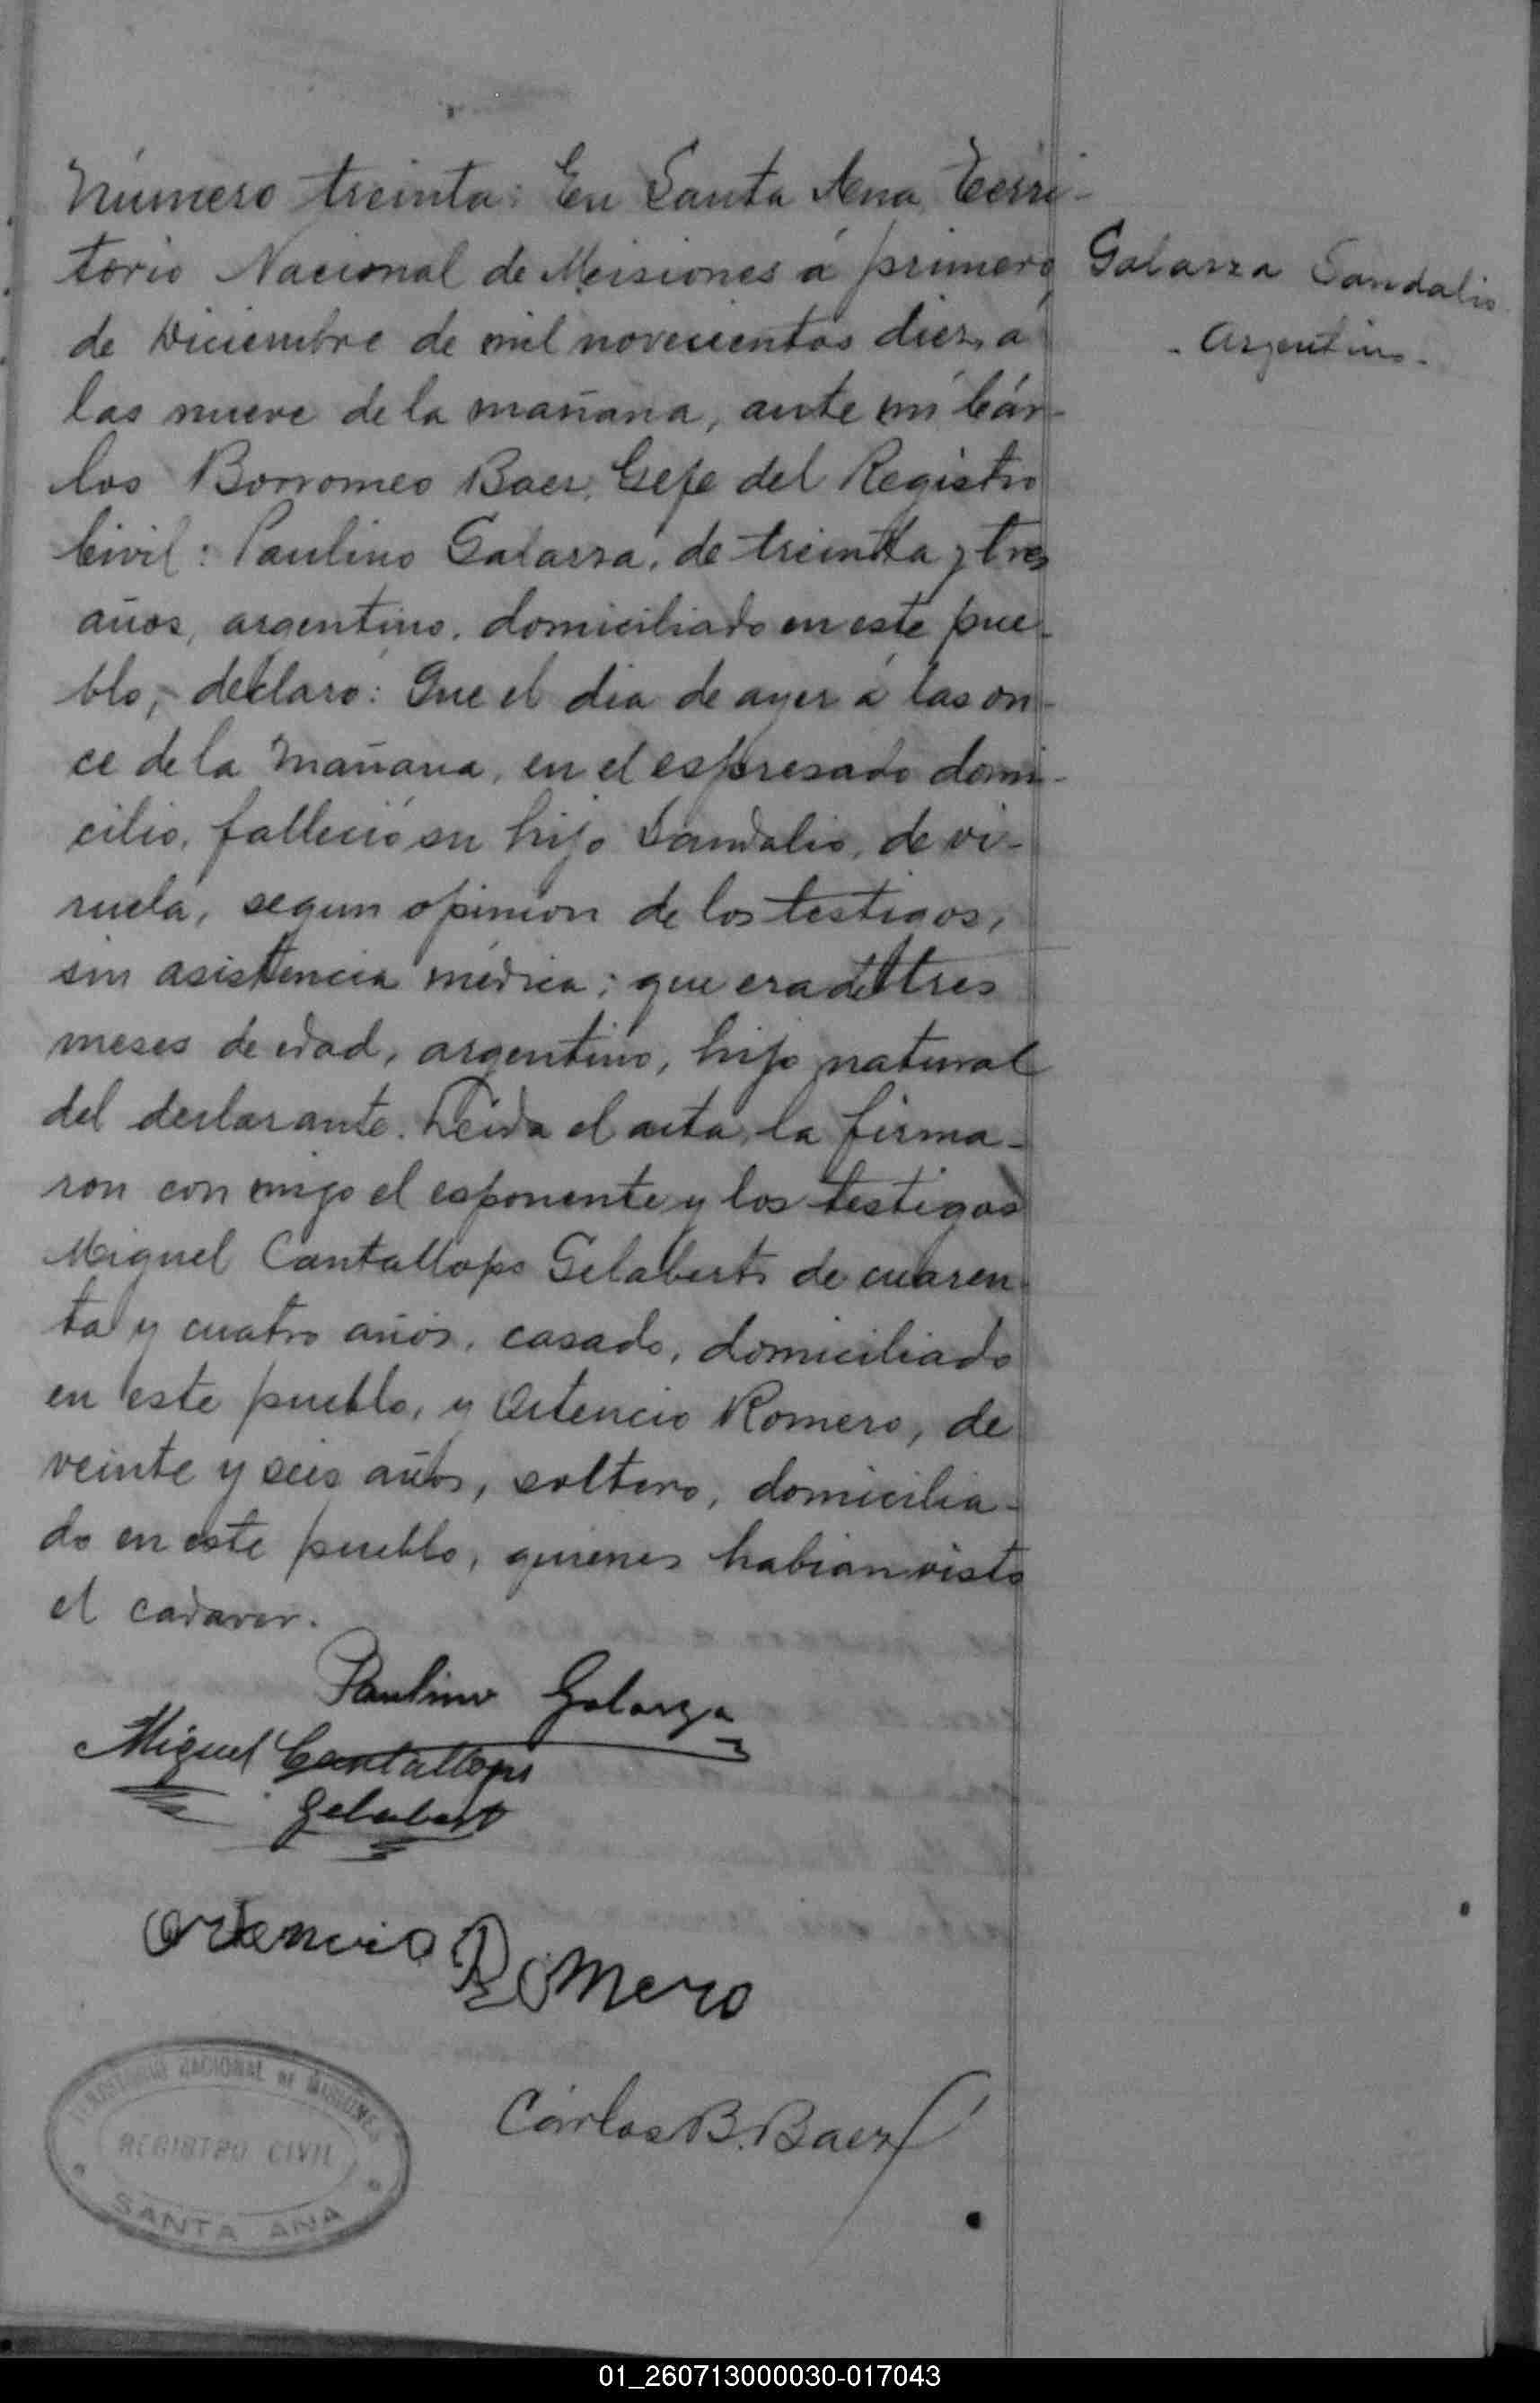 Número treinta: En Santa Ana, Terri-
torio Nacional de Misiones á primero
de Diciembre de mil novecientos diez, á
las nueve de la mañana, ante mí Cár-
los Borromeo Baez, Gefe del Registro
Civil: Paulino Galarza, de treinta y tres
años, argentino, domiciliado en este pue-
blo, declaró: Que el dia de ayer á las on-
ce de la mañana, en el espresado domi-
cilio, falleció su hijo Sandalio, de vi-
ruela, segun opinion de los testigos,
sin asistencia médica; que era de tres
meses de edad, argentino, hijo natural
del declarante. Leida el acta, la firma-
ron con migo el esponente y los testigos
Miguel Cantallops Gelabert, de cuaren-
ta y cuatro años, casado, domiciliado
en este pueblo, y Ortencio Romero, de
veinte y seis años, soltero, domicilia-
do en este pueblo, quienes habian visto
el cadaver.
Galarza Sandalio
- Argentino -
Paulino Galarza
Miguel Cantallops
Gelabert
Ortencio Romero
Cárlos B. Baez
TERRITORIO NACIONAL DE MISIONES
REGISTRO CIVIL
SANTA ANA
01_260713000030-017043